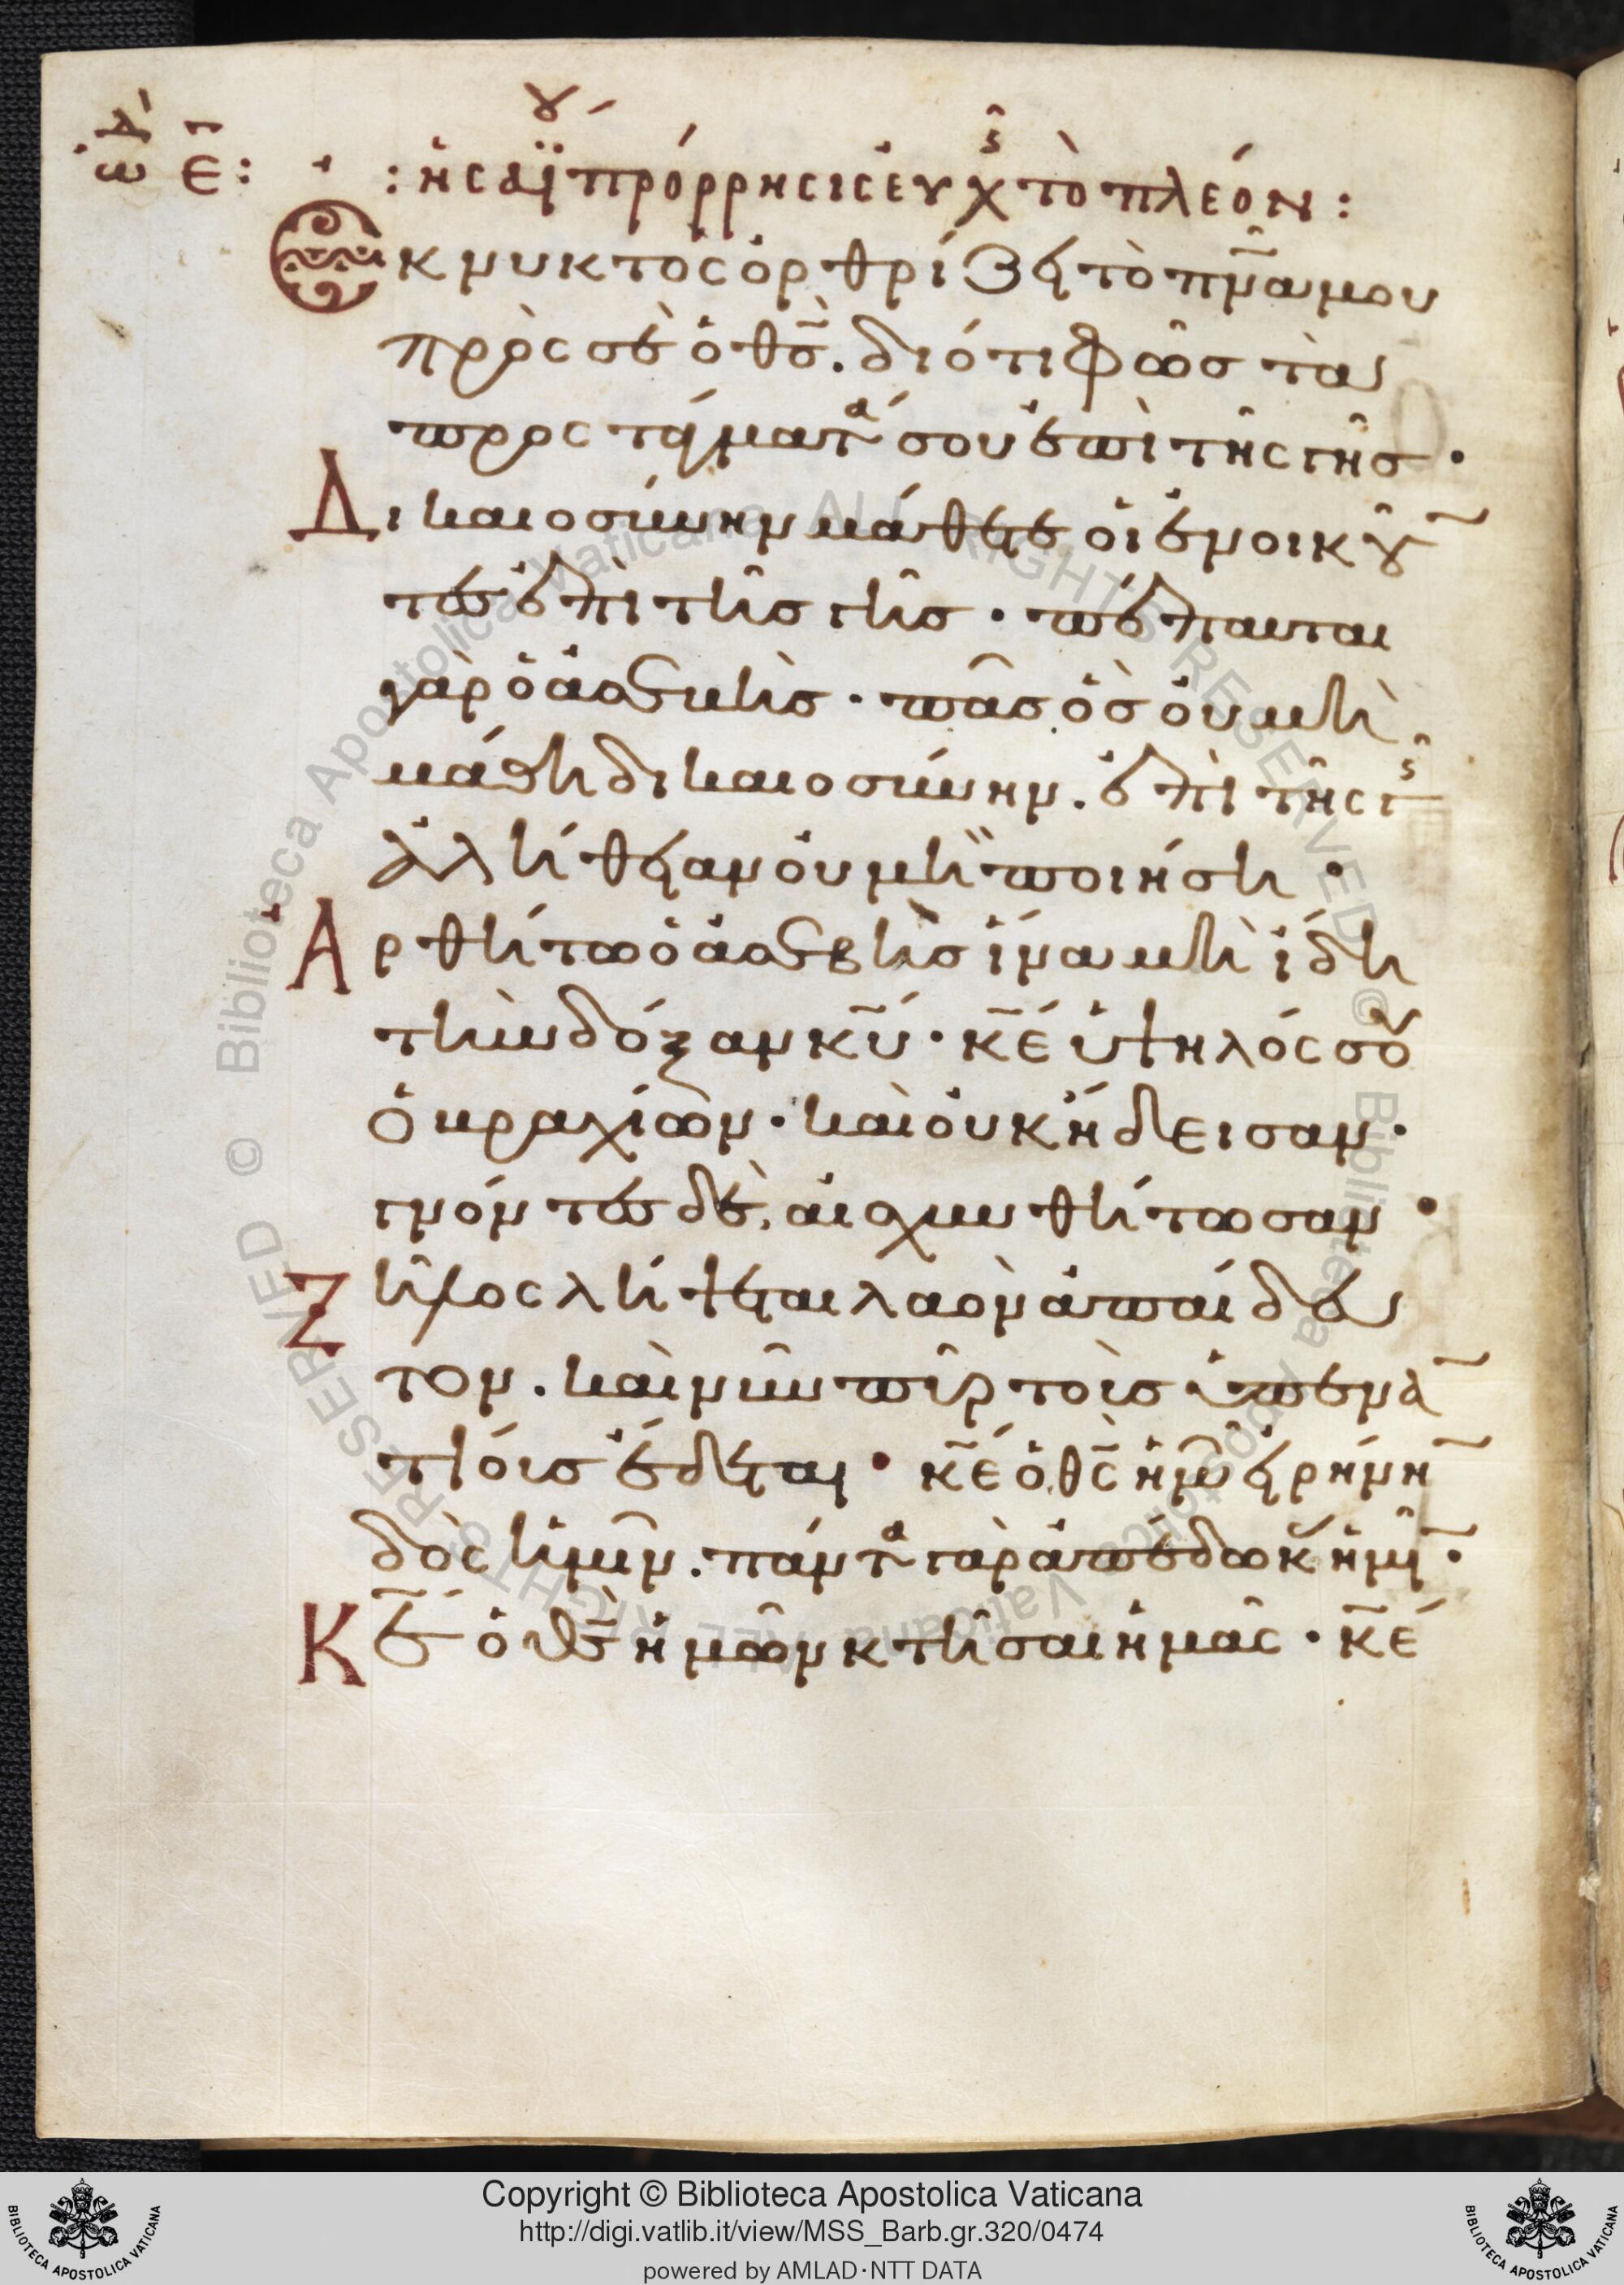 ὠδ ε:
: ἡσαΐου πρόρρησις εὐχῆς τὸ πλέον :
Ἐκ νυκτὸς ὀρθρίζει τὸ πνᾶ μου
πρὸς σὲ ὁ θς̅. διότι φῶς τὰ
προστάγματά σου ἐπὶ τῆς γῆς ·
Δικαιοσύνην μάθετε οἱ ἐνοικοῦν
τες ἐπὶ τῆς γῆς · πέπαυται
γὰρ ὁ ἀσεβὴς · πᾶς ὃς οὐ μὴ
μάθη δικαιοσύνην. ἐπὶ τῆς γῆς
ἀλήθειαν οὐ μὴ ποιήση ·
Ἀρθήτω ὁ ἀσεβὴς ἵνα μὴ ἴδη
τὴν δόξαν κ̅υ̅ · κ̅ε̅ ὑψηλός σου
ὁ βραχίων · καὶ οὐκ ἤδεισαν ·
γνόντες δὲ, αἰσχυνθήτωσαν ·
Ζῆλος λήψεται λαὸν ἀπαίδευ
τον. καὶ νῦν πῦρ τοὺς ὑπεναν
τίους ἔδεται · κ̅ε̅ ὁ θ̅ς̅ ἡμῶν εἰρήνην
δὸς ἡμῖν. πάντα γὰρ ἀπέδωκας ἡμῖν ·
Κ̅ε̅ ὁ θ̅ς̅ ἡμῶν κτῆσαι ἡμᾶς · κ̅ε̅
Copyright © Biblioteca Apostolica Vaticana
http://digi.vatlib.it/view/MSS_Barb.gr.320/0474
powered by AMLAD·NTT DATA
BIBLIOTECA APOSTOLICA VATICANA
BIBLIOTECA APOSTOLICA VATICANA
© Biblioteca Apostolica Vaticana ALL RIGHTS RESERVED © Biblioteca Apostolica Vaticana ALL RIGHTS RESERVED